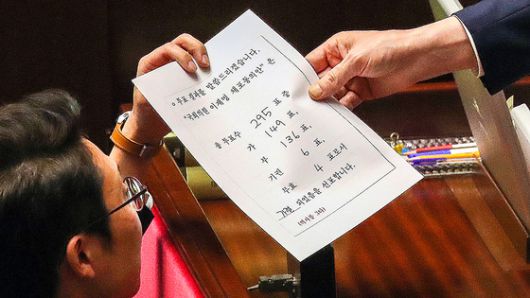 ○ 투표 결과를 말씀드리겠습니다.
"국회의원 이재명 체포동의안"은
총 투표수 295 표 중
가 149 표,
부 136 표,
기권 6 표,
무효 4 표로서
되었음을 선포합니다.
(의사봉 3타)